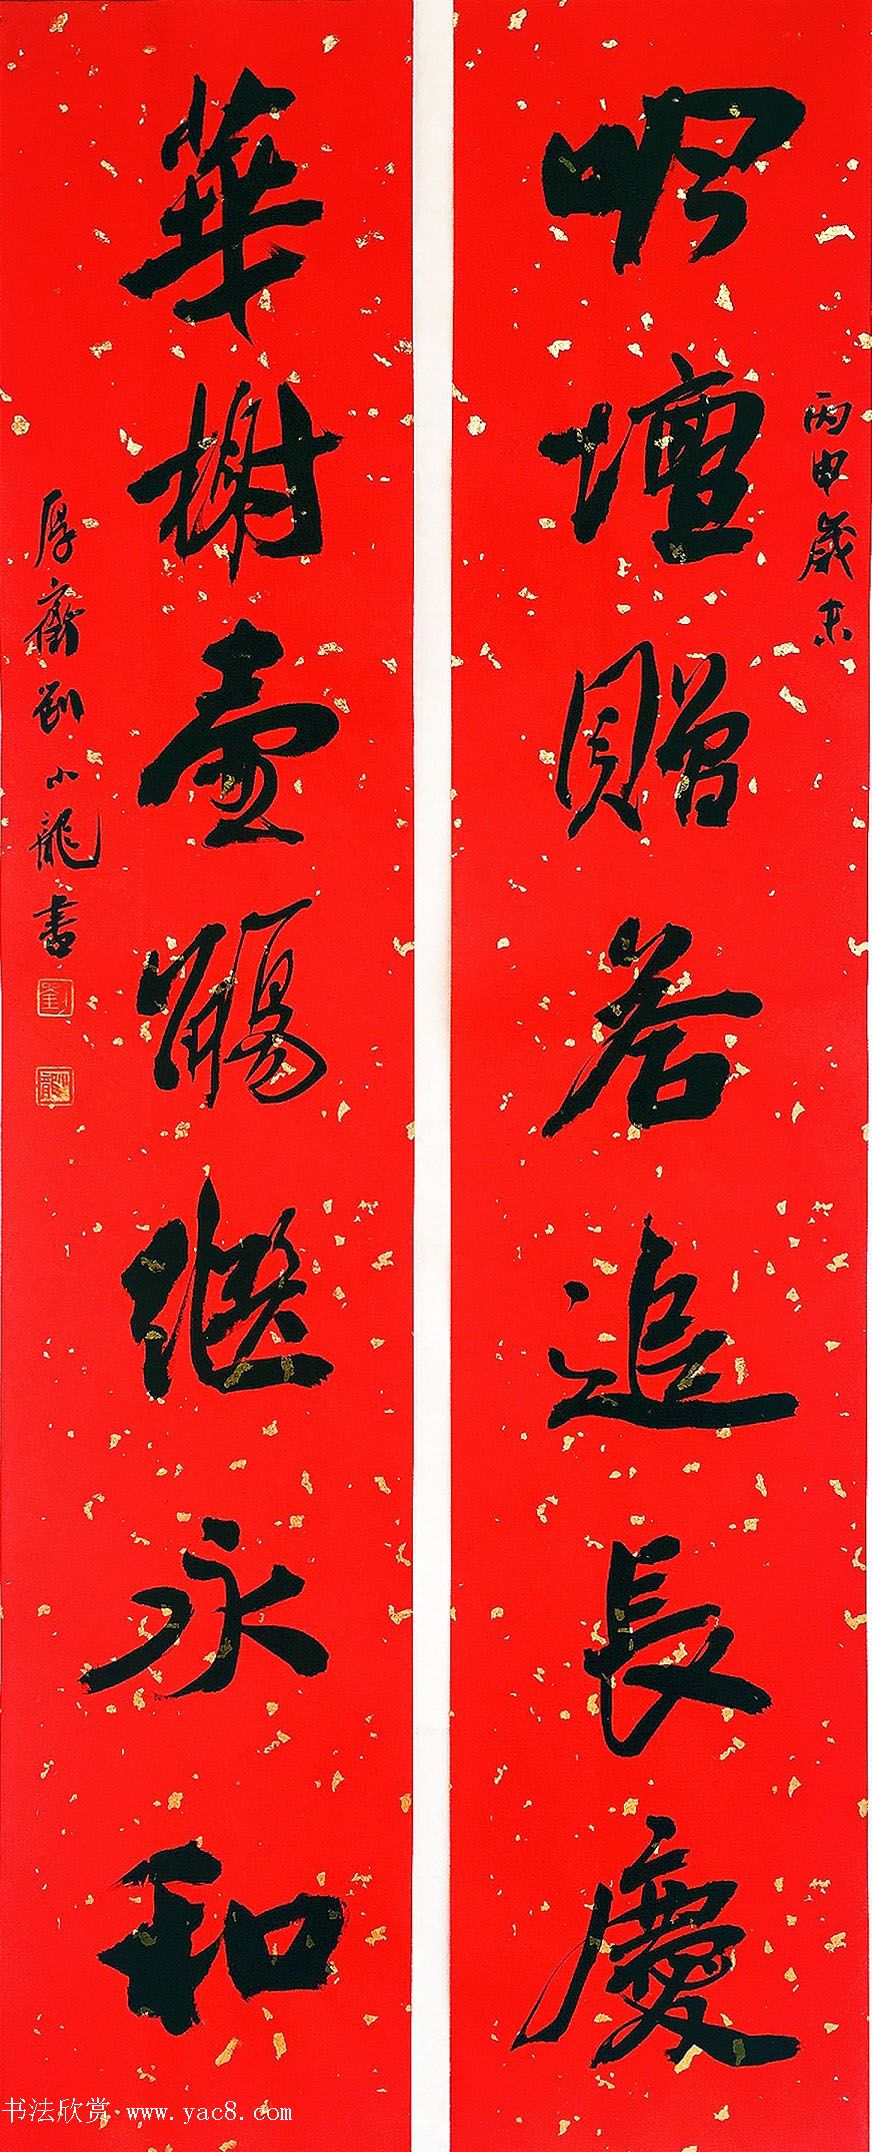 吟壇贈答追長慶
丙申歲末
華榭壺觴繼永和
厚齋劉小龍書
劉
小龍
书法欣赏 www.yac8.com